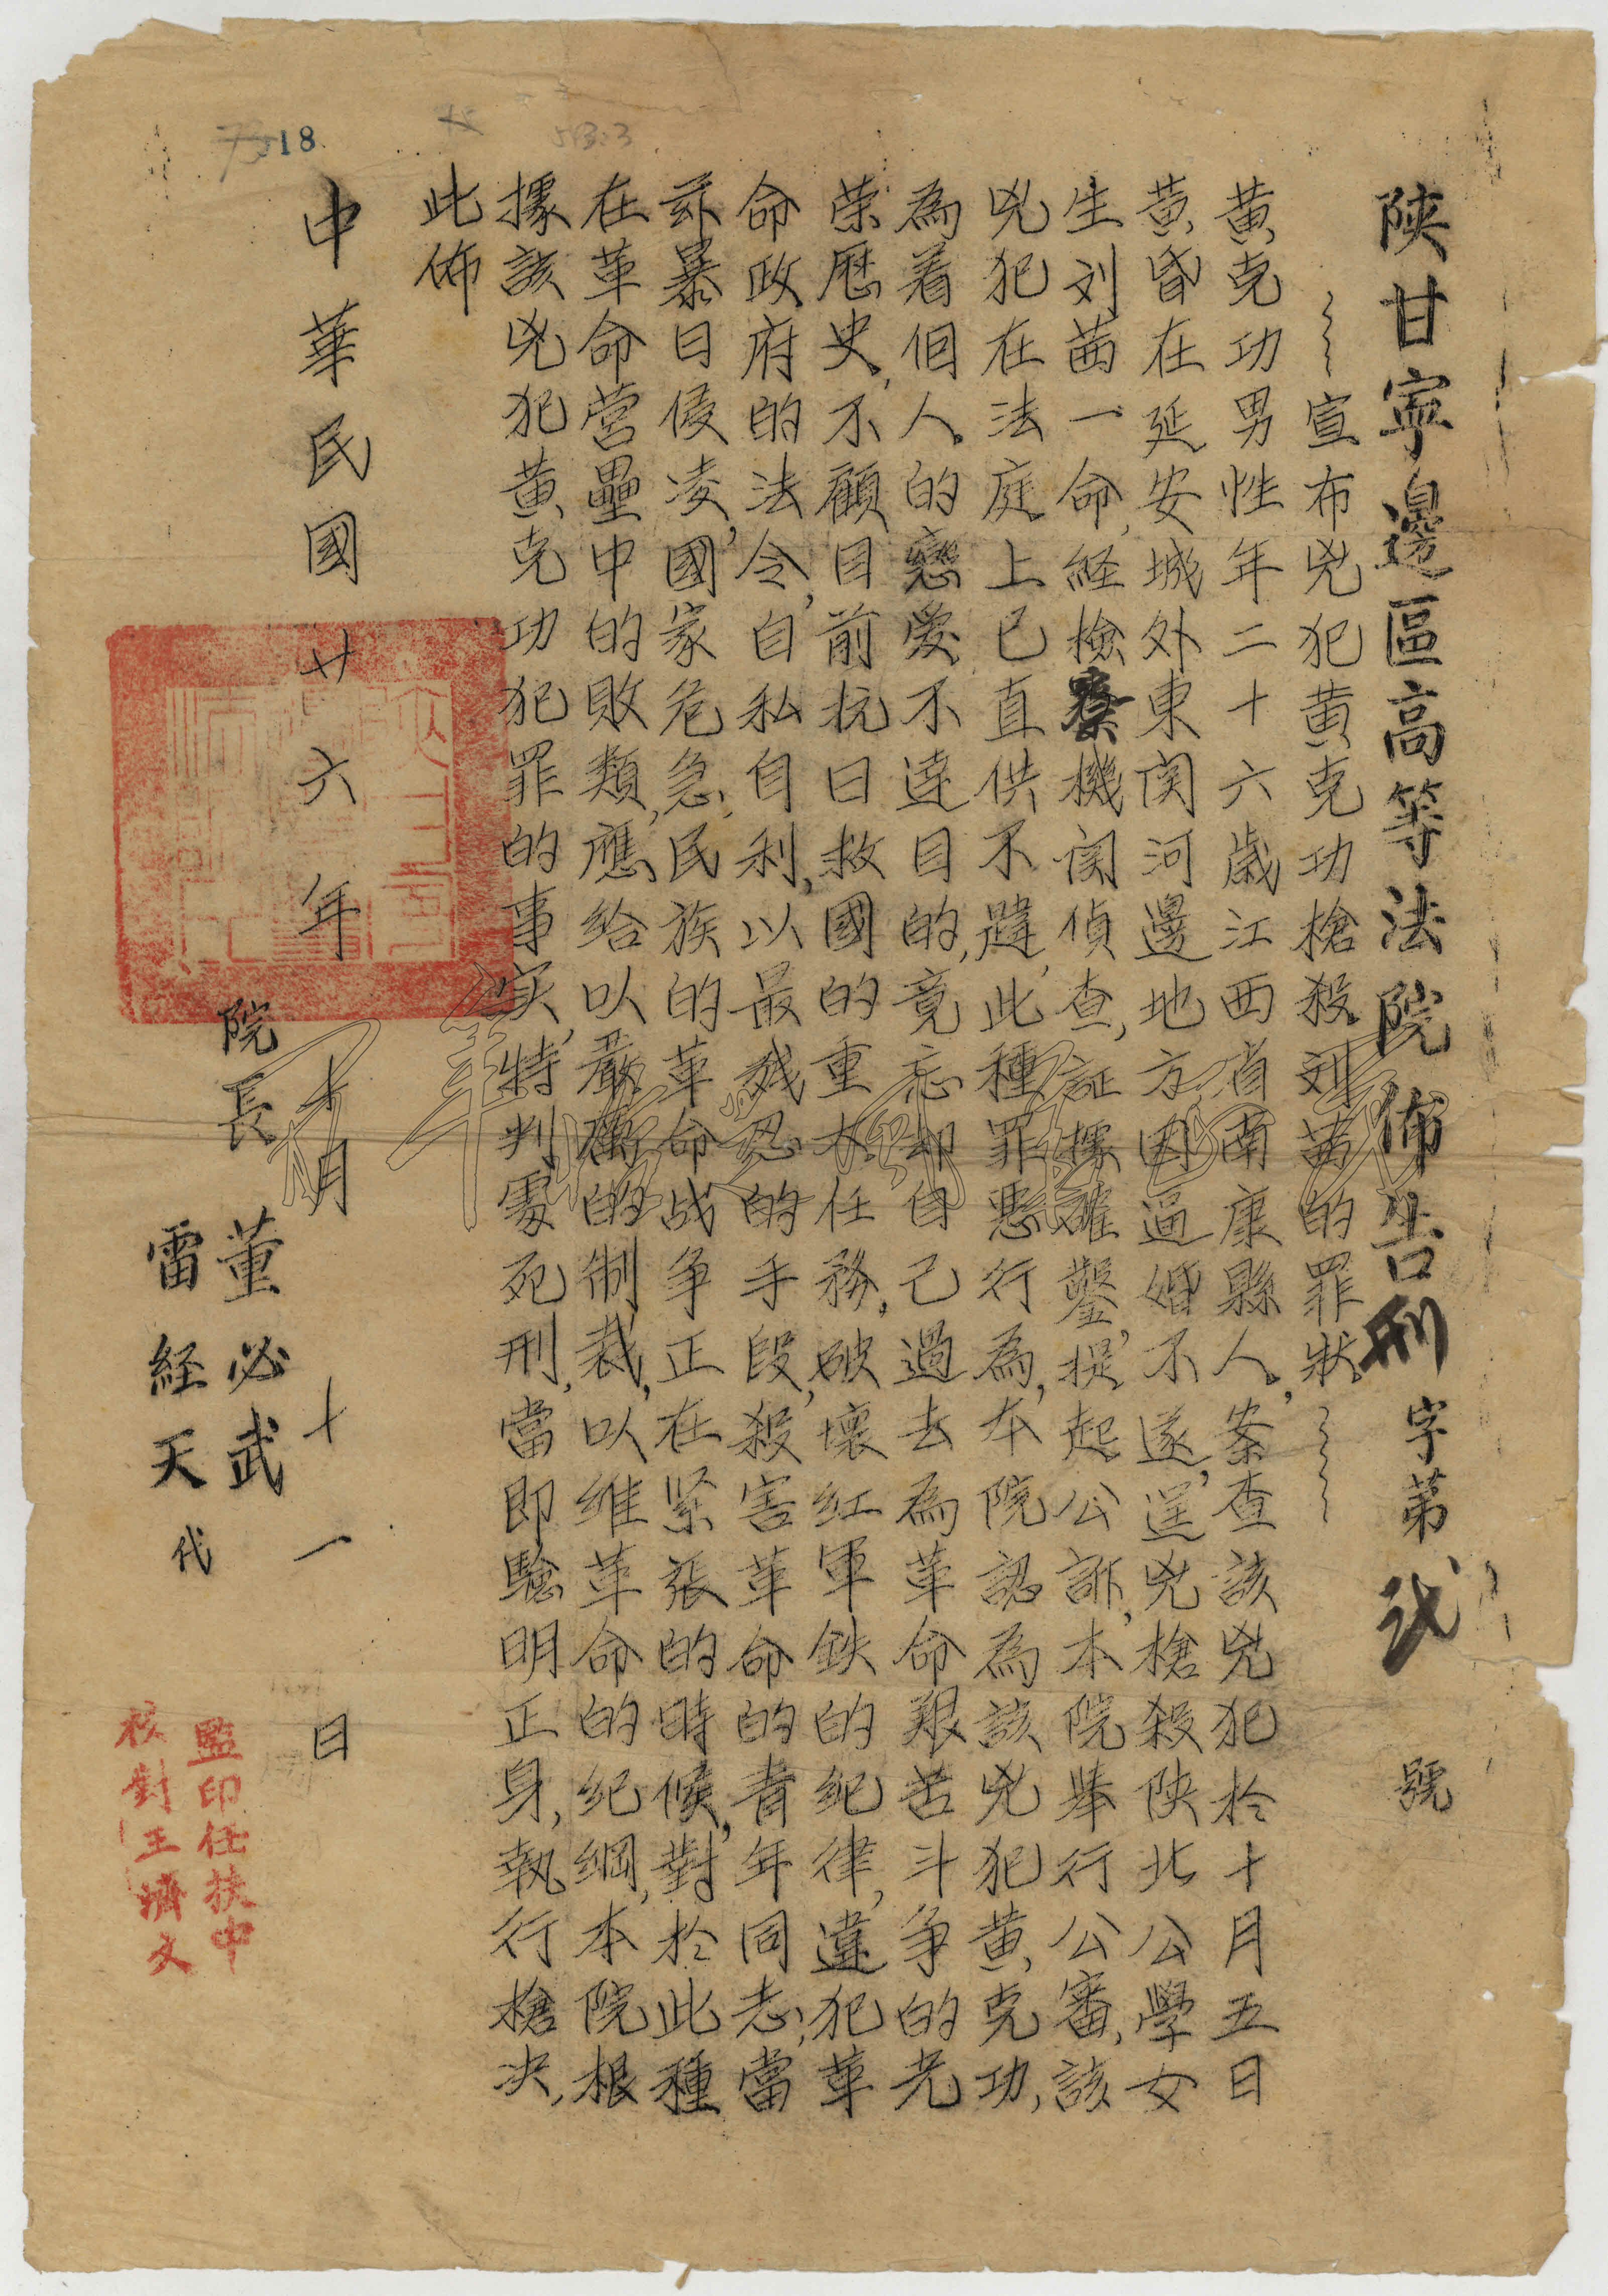 陝甘寧邊區高等法院佈告刑字第弍號
宣布兇犯黃克功槍殺刘茜的罪狀
黃克功男性年二十六歲江西省南康縣人,案查該兇犯於十月五日
黃昏在延安城外東関河邊地方因逼婚不遂,逞兇槍殺陝北公學女
生刘茜一命,経檢察機関偵查,証據確鑿,提起公訴,本院舉行公審,該
兇犯在法庭上已直供不諱,此種罪惡行為,本院認為該兇犯黃克功,
為着個人的戀愛不達目的,竟忘却自己過去為革命艱苦斗争的光
荣歷史,不顧目前抗日救國的重大任務,破壞红軍鉄的紀律,違犯革
命政府的法令,自私自利,以最残忍的手段,殺害革命的青年同志,當
茲暴日侵凌,國家危急,民族的革命战争正在紧張的時候,對於此種
在革命营壘中的敗類,應給以嚴厲的制裁,以维革命的紀綱,本院根
據該兇犯黃克功犯罪的事实,特判處死刑,當即驗明正身,執行槍决,
此佈
中華民國廿六年十月十一日
院長 董必武
雷経天 代
監印任扶中
校對王濟文
18